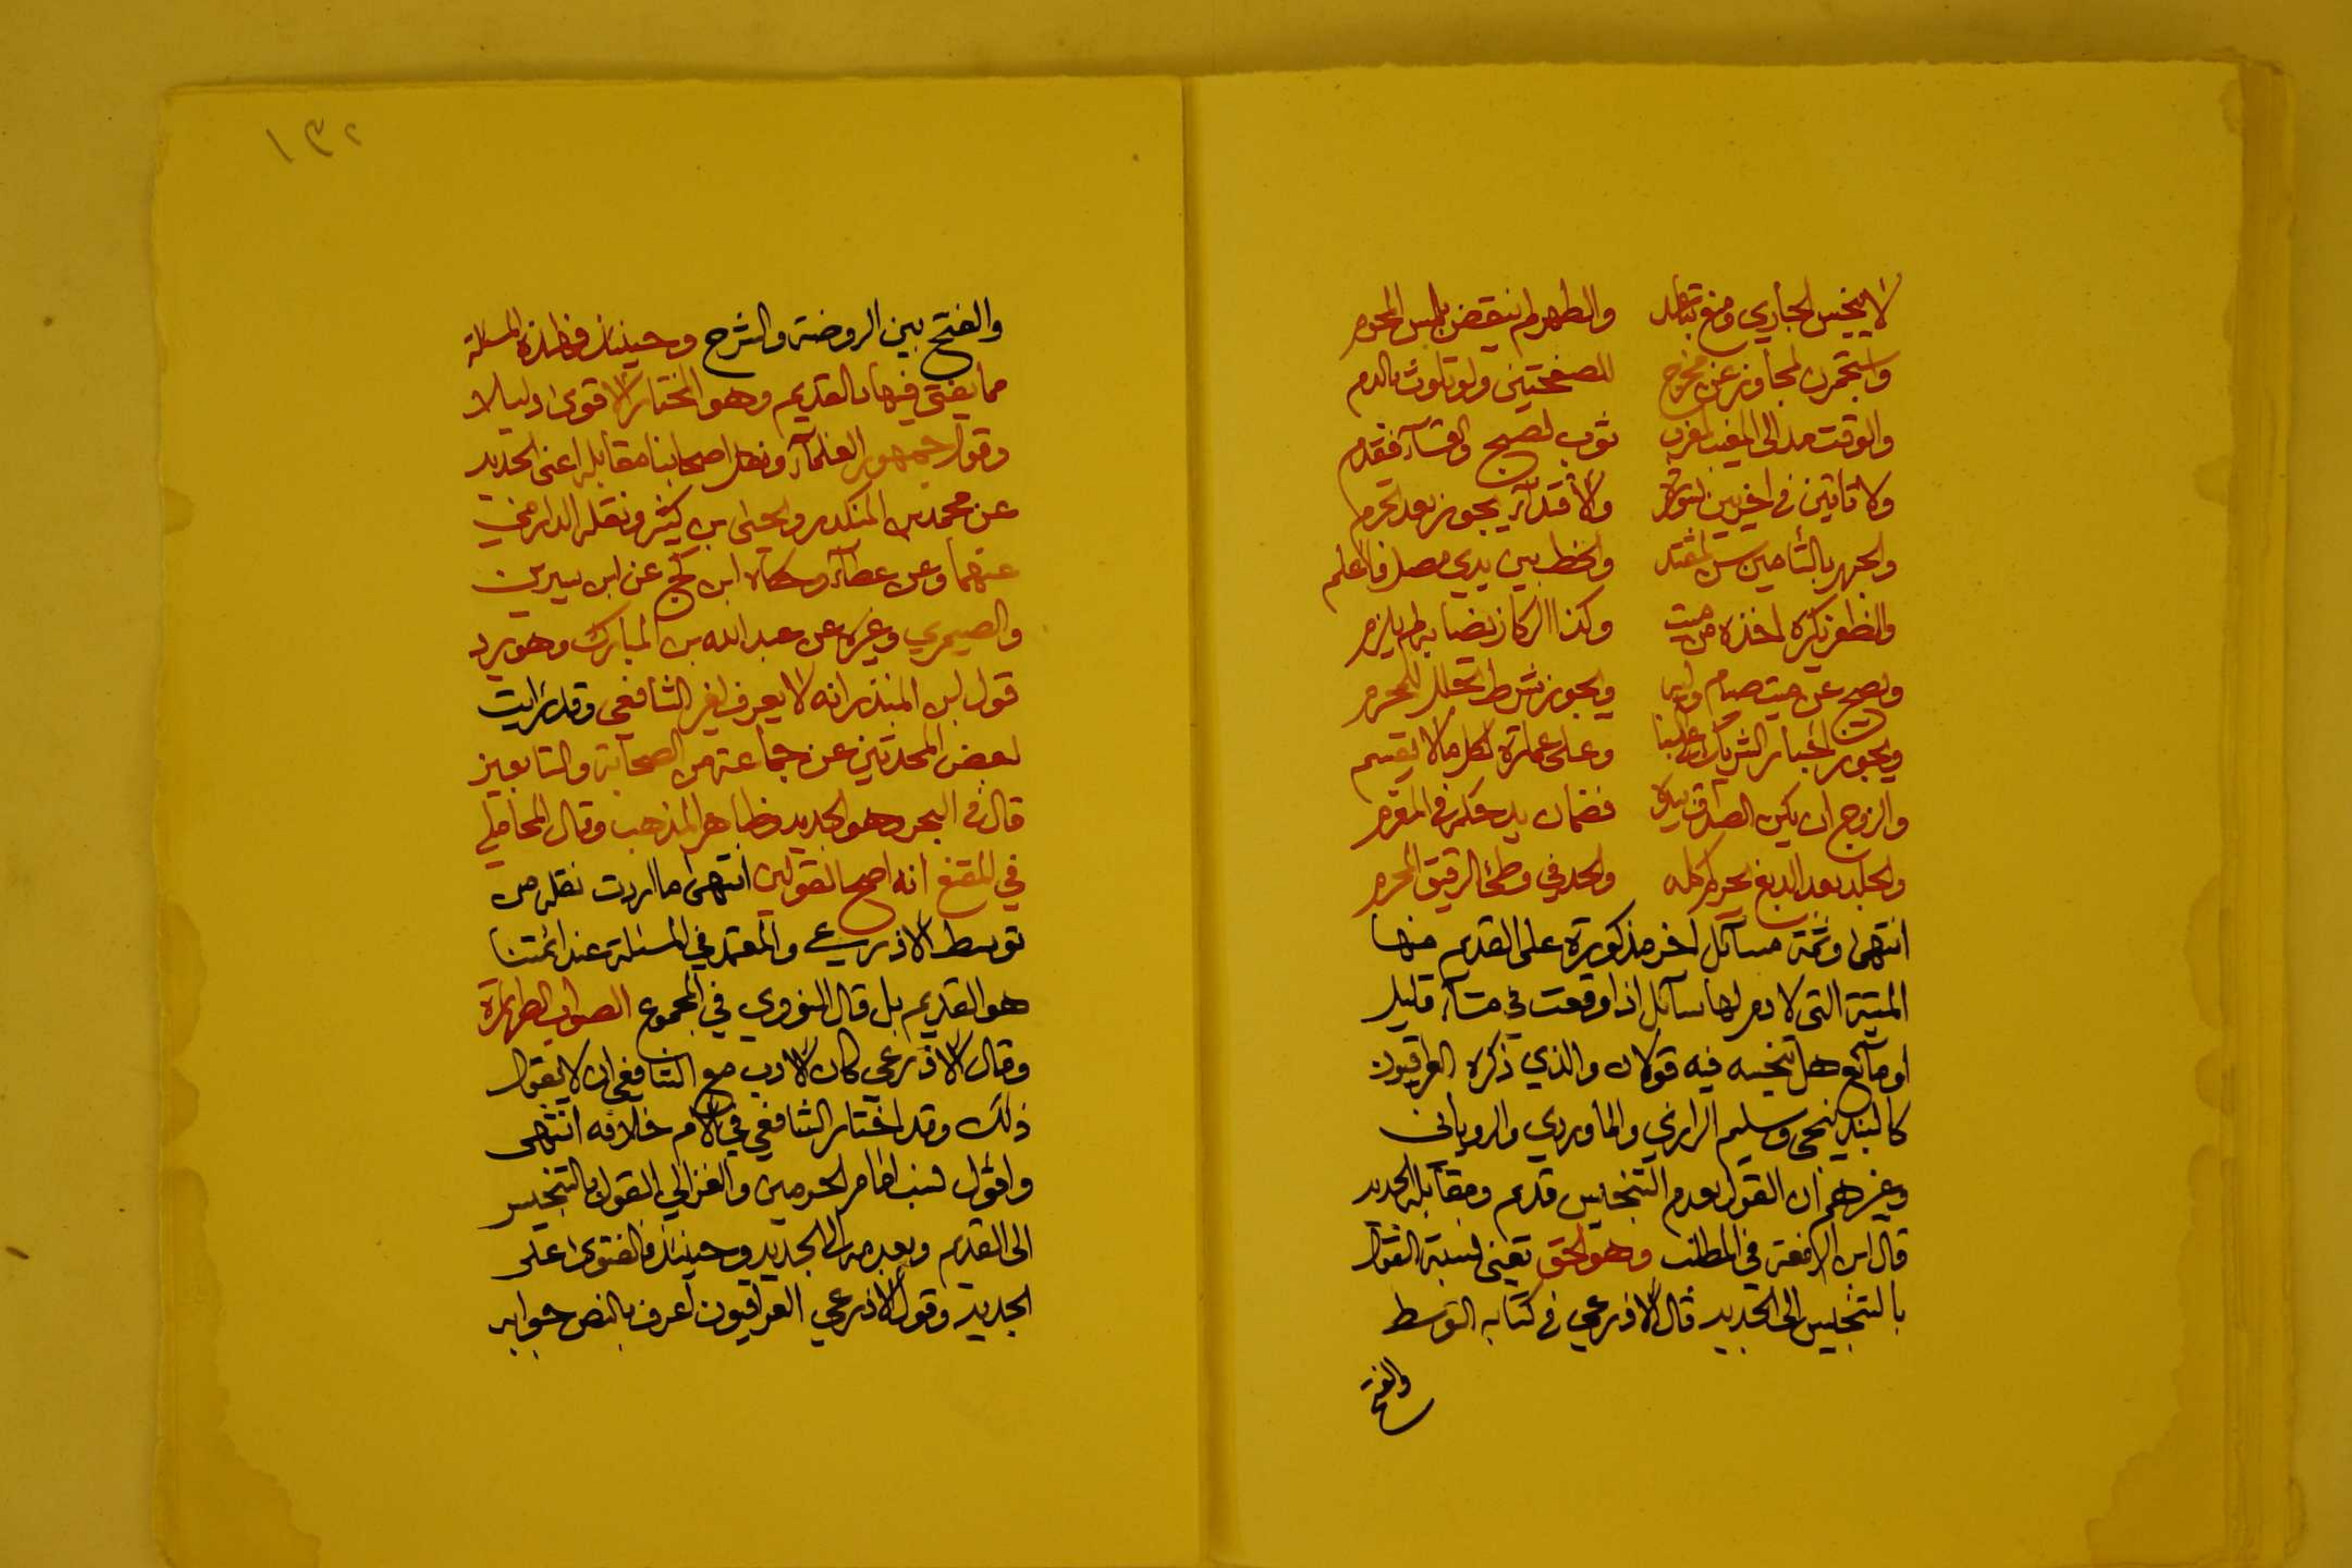 لا ينجس الجاري ومنع تباعد والطهر لم ينقض بلمس المحرم
واستجمرن لمجاوز عن مخرج للصفحتين ولو تلوث بالدم
والوقت مد الى المغيب لمغرب ثوب لصبح والعشاء فقدم
ولا تاتين في اخريين لسورة والاقتداء يجوز بعد تحرم
والجهر بالتأمين سن لمقتد والخط بين يدي مصل فاعلم
والظفر يكره اخذه من ميت وكذا الركاز نصابه لم يلزم
ويصح عن ميت صيام وليه ويجوز شرط تحلل للمحرم
ويجوز اجبار الشريك على البنا وعلى عمارة كل ما لا يقسم
والزوج ان يكن الصداق بيده فضمان يد حكمه في المغرم
والجلد بعد الدبغ يحرم اكله والحد في وطئ الرقيق المحرم
انتهى وثمة مسآئل اخر مذكورة على القديم منها
الميتة التي لا دم لها سآئل اذا وقعت في مآء قليل
او مآئع هل تنجسه فيه قولان والذي ذكره العراقيون
كالبندنيجي وسليم الرازي والماوردي والروياني
وغيرهم ان القول بعدم التنجيس قديم ومقابله الجديد
قال ابن الرفعة في المطلب وهو الحق يعني نسبة القول
بالتنجيس الى الجديد قال الاذرعي في كتابه التوسط
والفتح
١٣٢
والفتح بين الروضة والشرح وحينئذ فهذه المسئلة
مما يفتى فيها بالقديم وهو المختار الاقوى دليلا
وقول جمهور العلمآء ونقل اصحابنا مقابله اعني الجديد
عن محمد بن المنكدر ويحيى بن كثير ونقله الدارمي
عنهما وعن عطآء وحكاه ابن كج عن ابن سيرين
والصيمري وغيره عن عبد الله بن المبارك وهو يرد
قول ابن المنذر انه لا يعرف لغير الشافعي وقد رايت
لبعض المحدثين عن جماعة من الصحابة والتابعين
قال في البحر وهو الجديد وظاهر المذهب وقال المحاملي
في المقنع انه اصح القولين انتهى ما اردت نقله من
توسط الاذرعي والمعتمد في المسئلة عند ائمتنا
هو القديم بل قال النووي في المجموع الصواب الطهارة
وقال الاذرعي كان الادب مع الشافعي ان لا يقول
ذلك وقد اختار الشافعي في الام خلافه انتهى
واقول نسب امام الحرمين والغزالي القول بالتنجيس
الى القديم وبعدمه الى الجديد وحينئذ فالفتوى على
الجديد وقول الاذرعي العراقيون اعرف بالنص جوابه